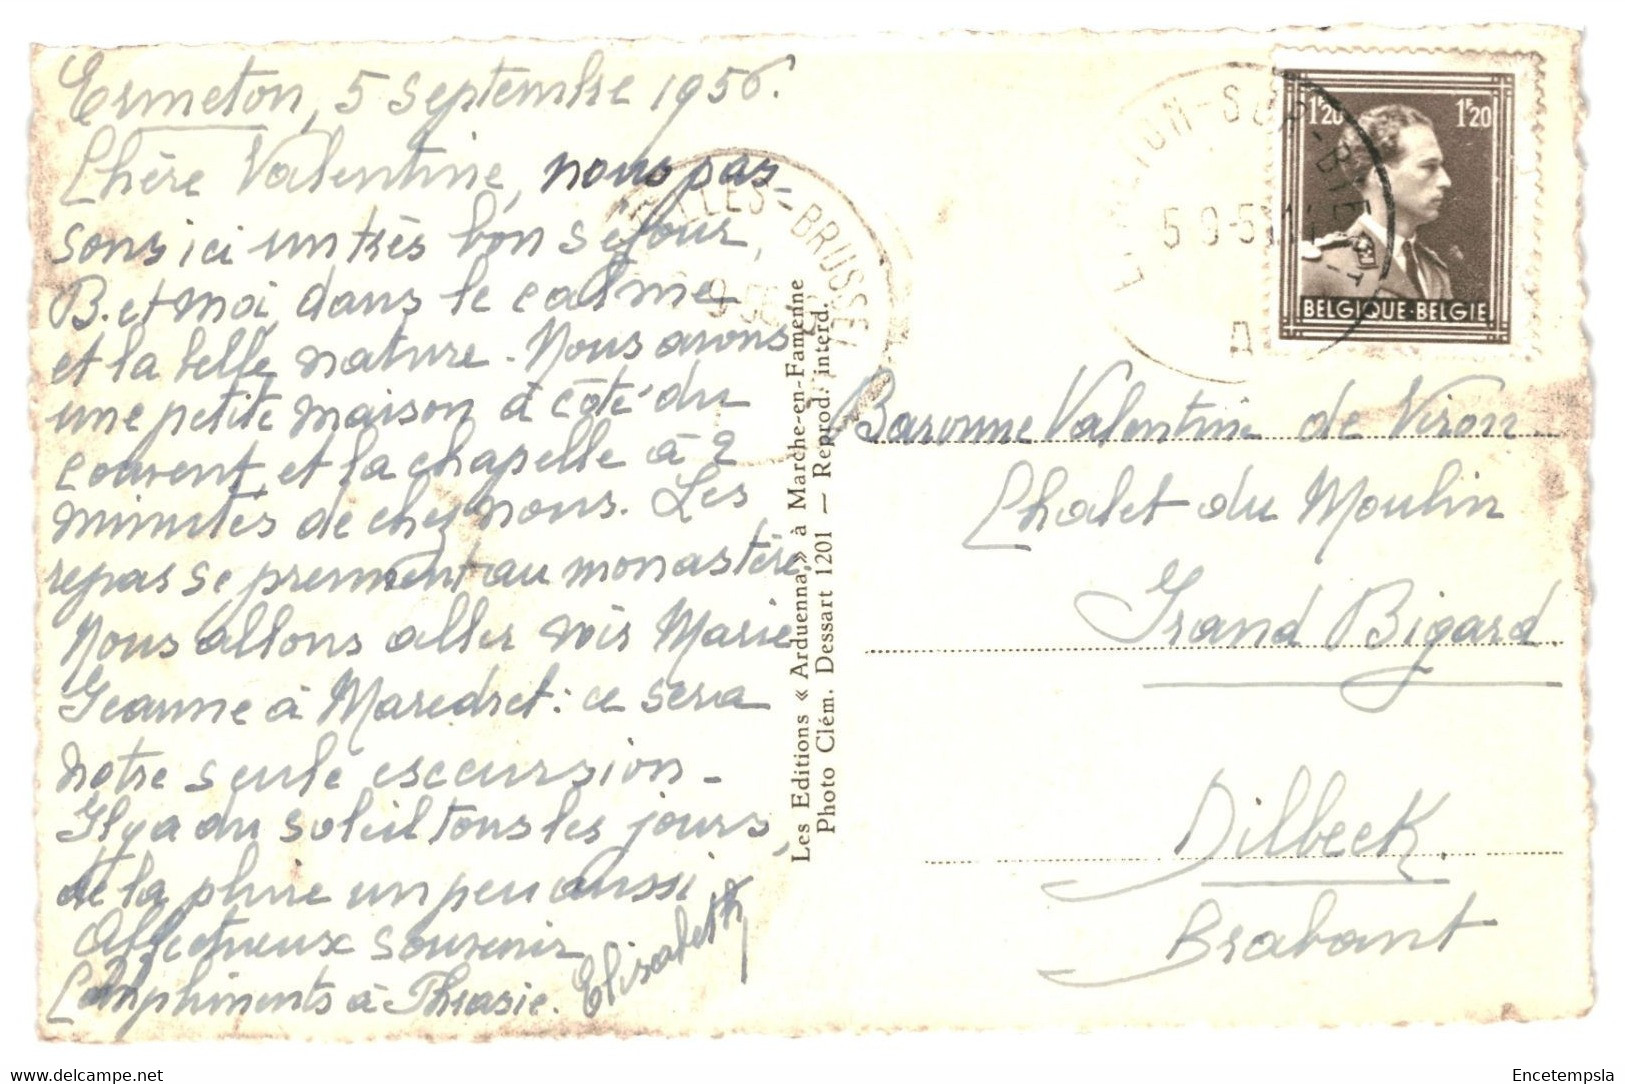 Ermeton, 5 septembre 1956.
Chère Valentine, nous pas-
sons ici un très bon séjour,
B. et moi, dans le calme
et la belle nature. Nous avons
une petite maison à côté du
couvent et la chapelle à 2
minutes de chez nous. Les
repas se prennent au monastère.
Nous allons aller voir Marie
Jeanne à Maredret : ce sera
notre seule excursion -
Il y a du soleil tous les jours,
de la pluie un peu aussi
Affectueux souvenir
Compliments à Thrasie. Elisabeth
Les Editions « Arduenna » à Marche-en-Famenne
Photo Clém. Dessart 1201 — Reprod. interd.
ELLES-BRUSSEL
9-56
-SUR-BIE
5-9-5
A
1F20 1F20
BELGIQUE·BELGIE
Baronne Valentine de Viron
Chalet du Moulin
Grand Bigard
Dilbeek
Brabant
www.delcampe.net
Encetempsla